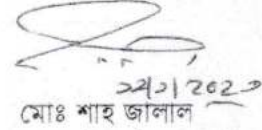 ২২/২/২০২৩
মোঃ শাহ জালাল